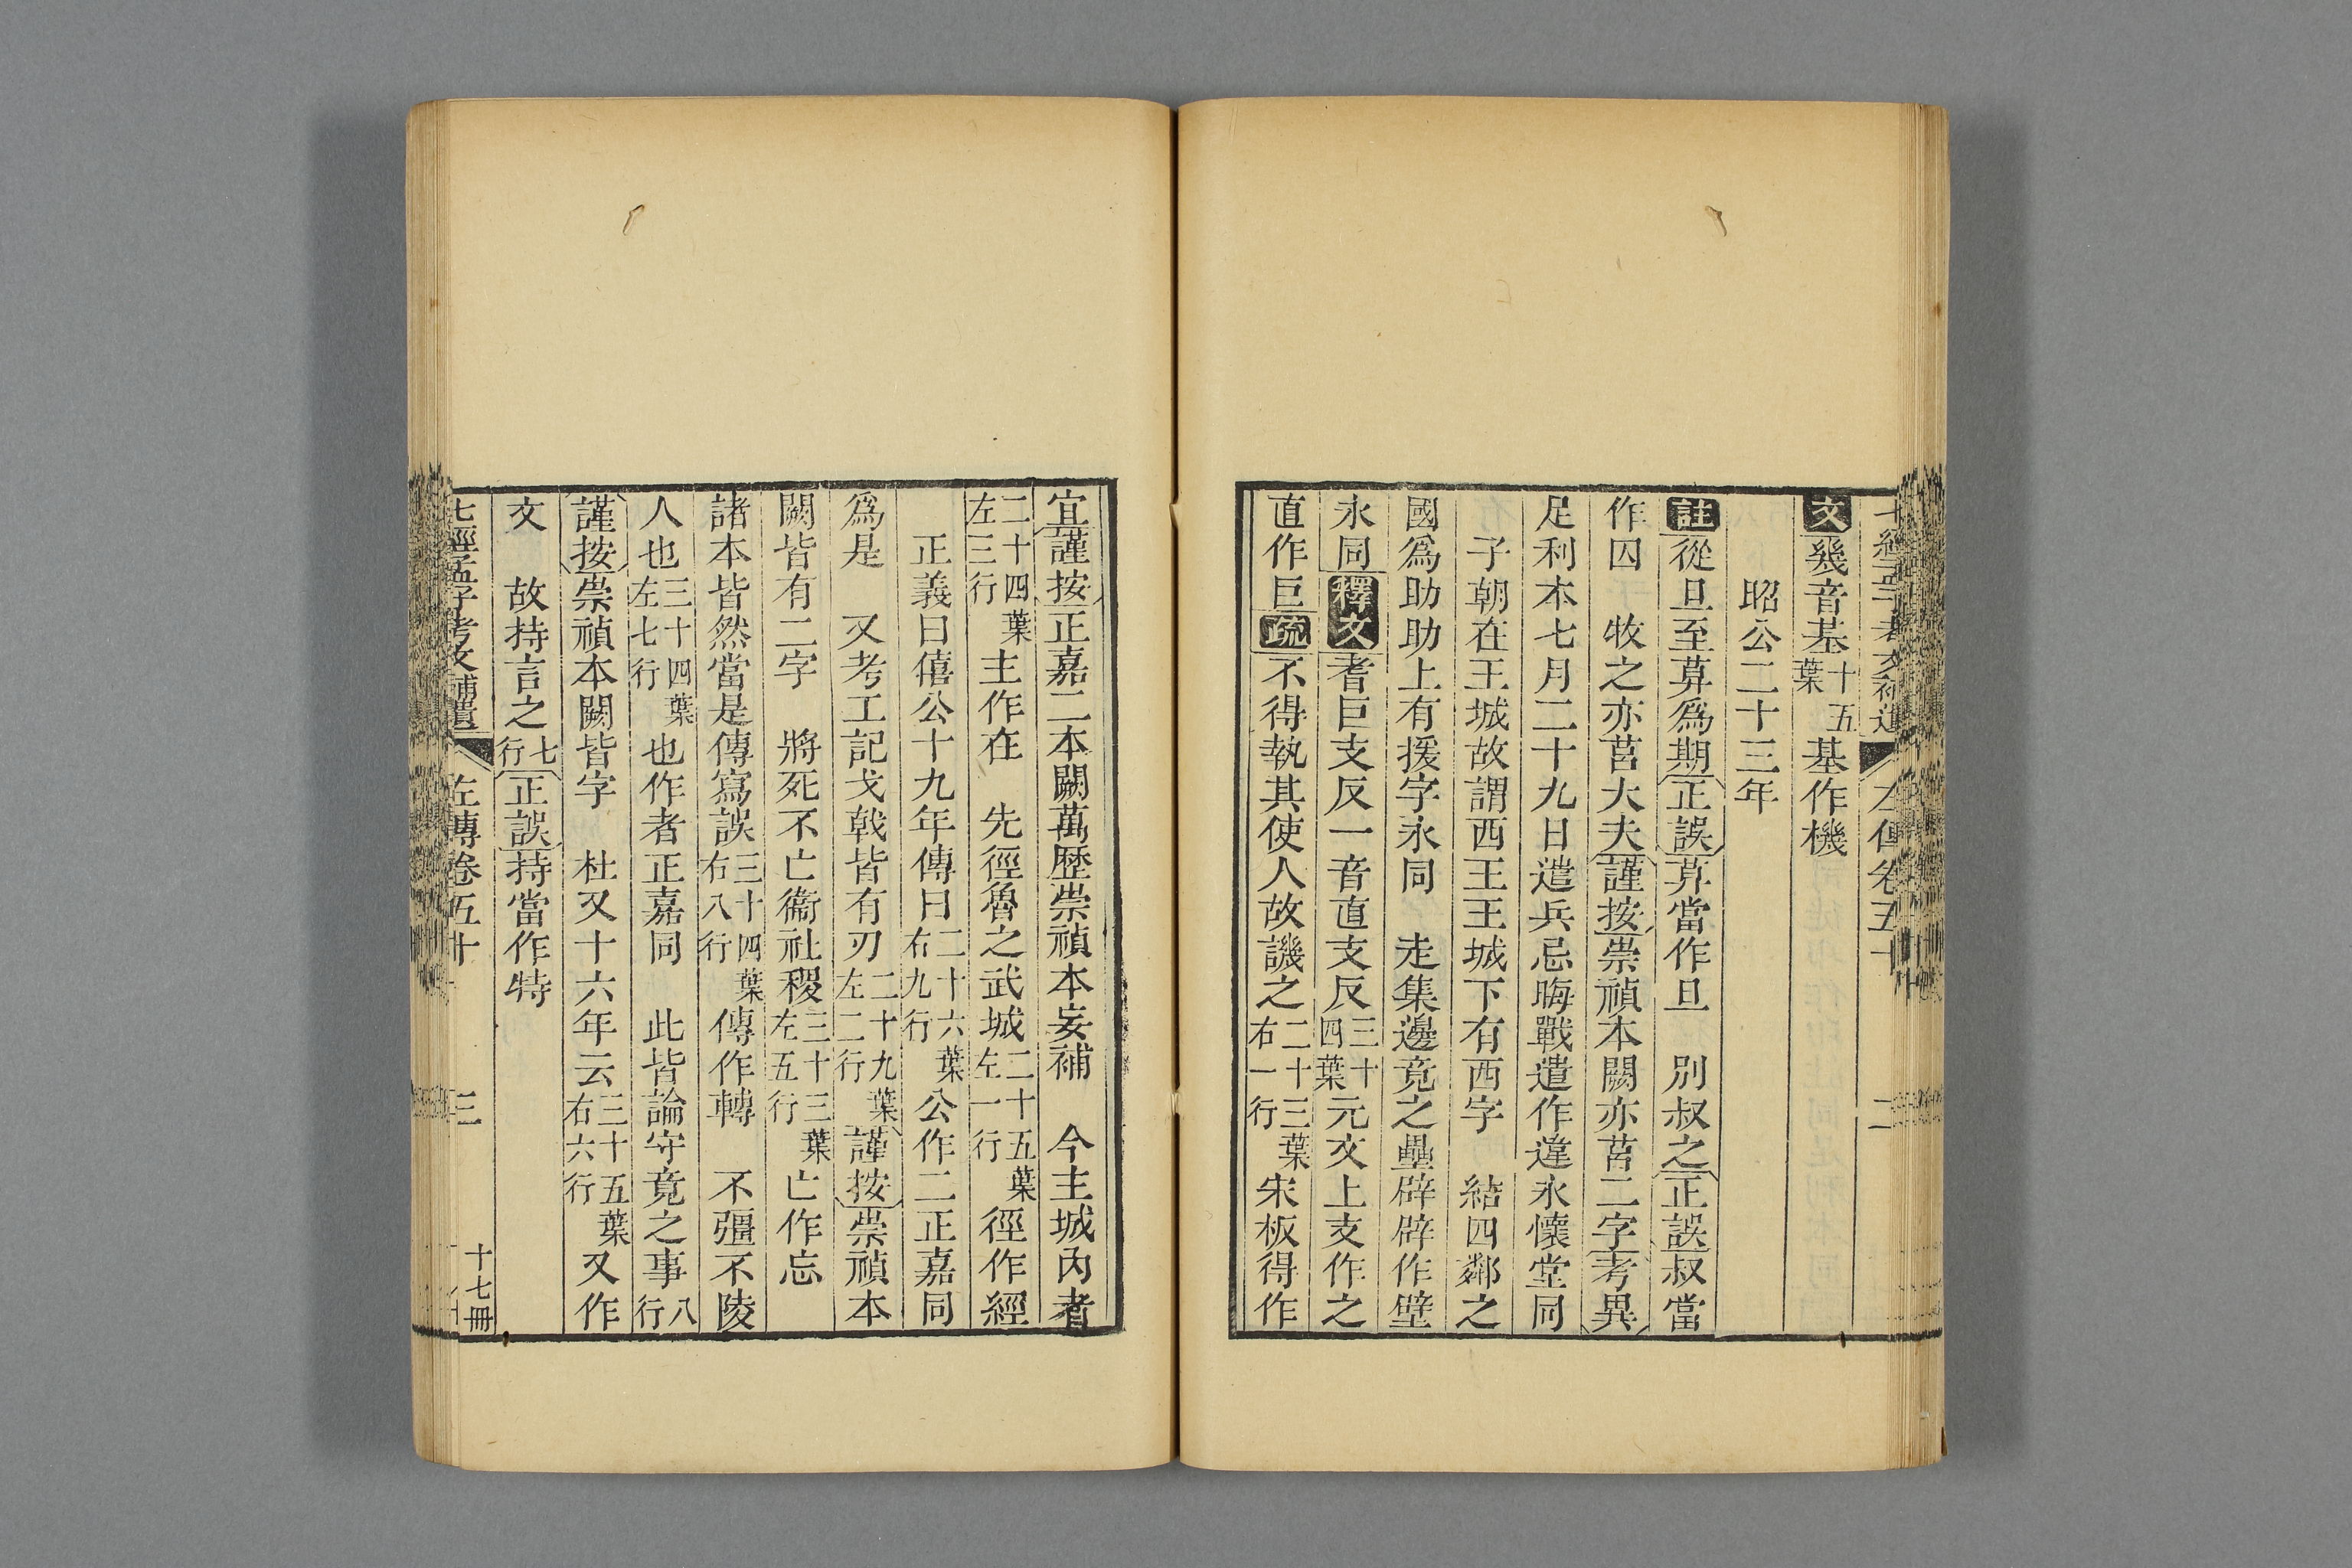 七經孟子考文補遺　左傳卷五十　二
文幾音基十五葉基作機
昭公二十三年
註從旦至莫爲期正誤莫當作旦　別叔之正誤叔當
作囚　牧之亦莒大夫謹按崇禎本闕亦莒二字考異
足利本七月二十九日遣兵忌晦戰遣作違永懷堂同
子朝在王城故謂西王王城下有西字　結四鄰之
國爲助助上有援字永同　走集邊竟之壘辟辟作壁
永同釋文耆巨支反一音直支反三十四葉元文上支作之
直作巨疏不得執其使人故譏之二十三葉右一行宋板得作
宜謹按正嘉二本闕萬歷崇禎本妄補　今主城內者
二十四葉左三行主作在　先徑魯之武城二十五葉左一行徑作經
正義曰僖公十九年傳曰二十六葉右九行公作二正嘉同
爲是　又考工記戈戟皆有刃二十九葉左二行謹按崇禎本
闕皆有二字　將死不亡衞社稷三十三葉左五行亡作忘
諸本皆然當是傳寫誤三十四葉右八行傳作轉　不彊不陵
人也三十四葉左七行也作者正嘉同　此皆論守竟之事八行
謹按崇禎本闕皆字　杜又十六年云三十五葉右六行又作
文　故持言之七行正誤持當作特
七經孟子考文補遺　左傳卷五十　三　十七冊